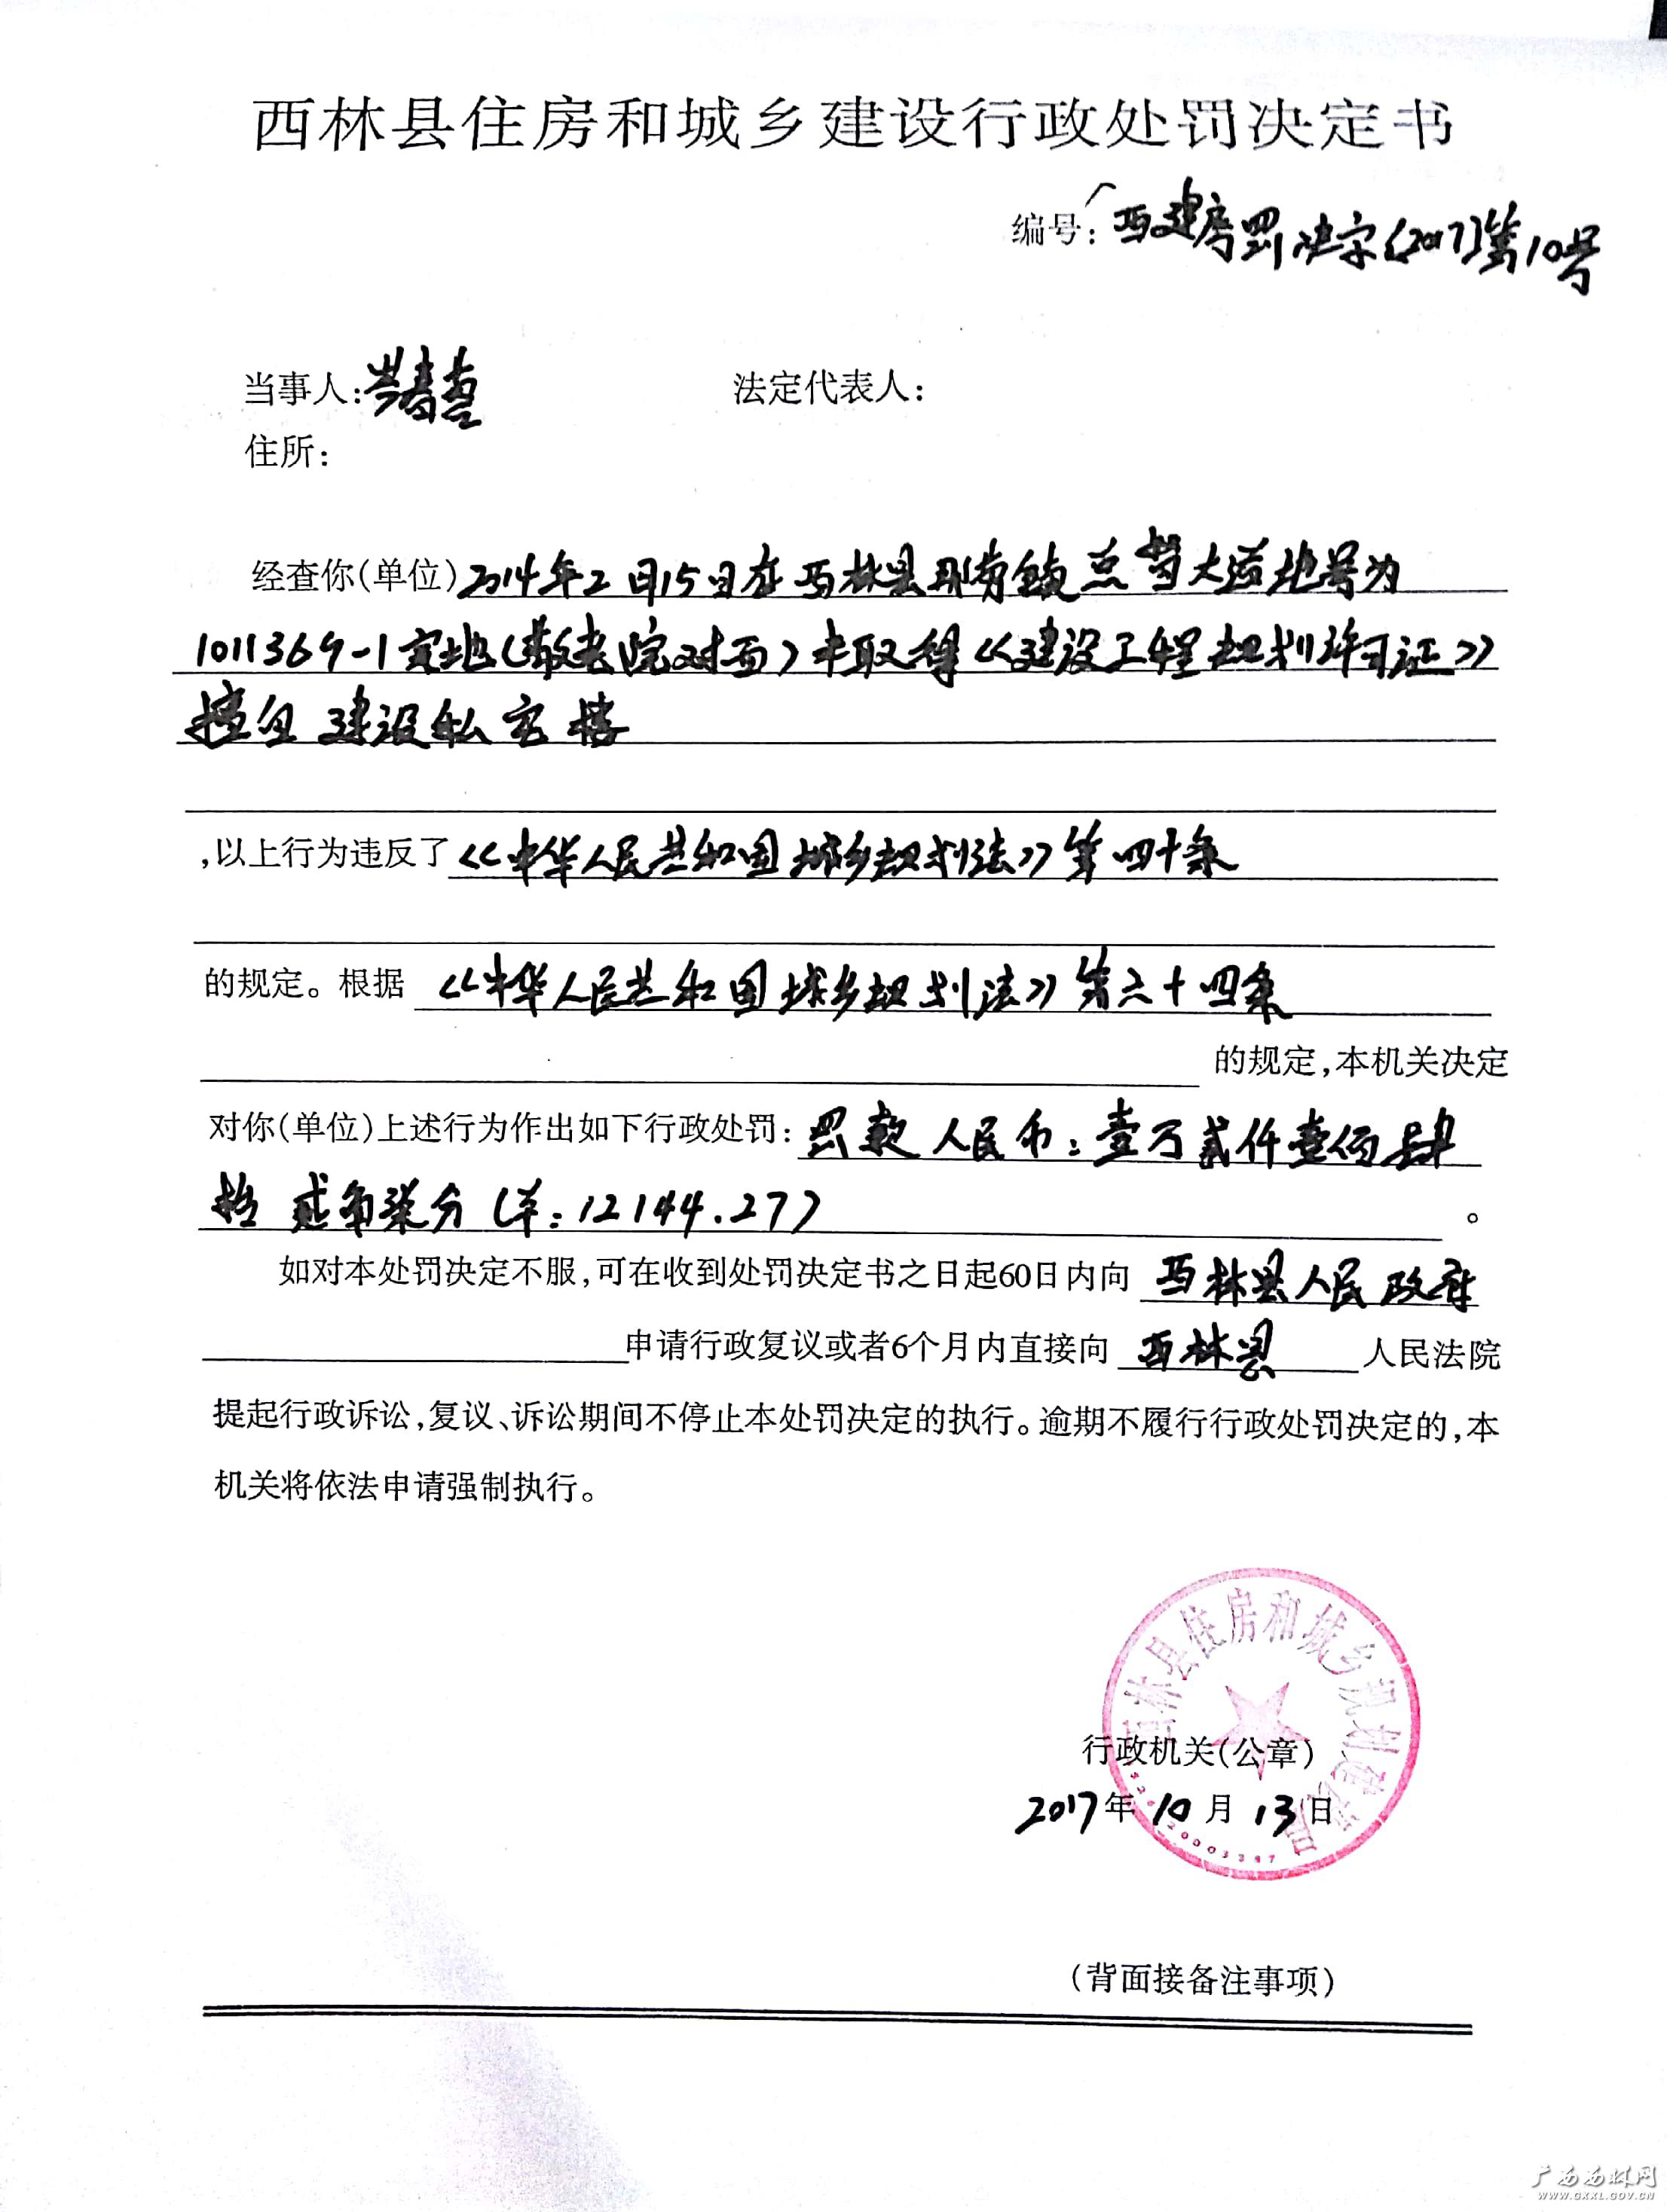 西林县住房和城乡建设行政处罚决定书
编号:西建房罚决字(2017)第10号
当事人: 法定代表人:
住所:
经查你(单位)2014年2月15日在西林县那劳镇 大道地号为
1011369-1 宗地(敬老院对面)未取得《建设工程规划许可证》
擅自建设私宅楼
,以上行为违反了《中华人民共和国城乡规划法》第四十条
的规定。根据《中华人民共和国城乡规划法》第六十四条
的规定,本机关决定
对你(单位)上述行为作出如下行政处罚:罚款人民币:壹万贰仟壹佰肆
拾贰角柒分(羊:12144.27)。
如对本处罚决定不服,可在收到处罚决定书之日起60日内向西林县人民政府
申请行政复议或者6个月内直接向西林县人民法院
提起行政诉讼,复议、诉讼期间不停止本处罚决定的执行。逾期不履行行政处罚决定的,本
机关将依法申请强制执行。
西林县住房和城乡规划建设局
行政机关(公章)
2017年10月13日
(背面接备注事项)
广西西林网
WWW.GXXL.GOV.CN